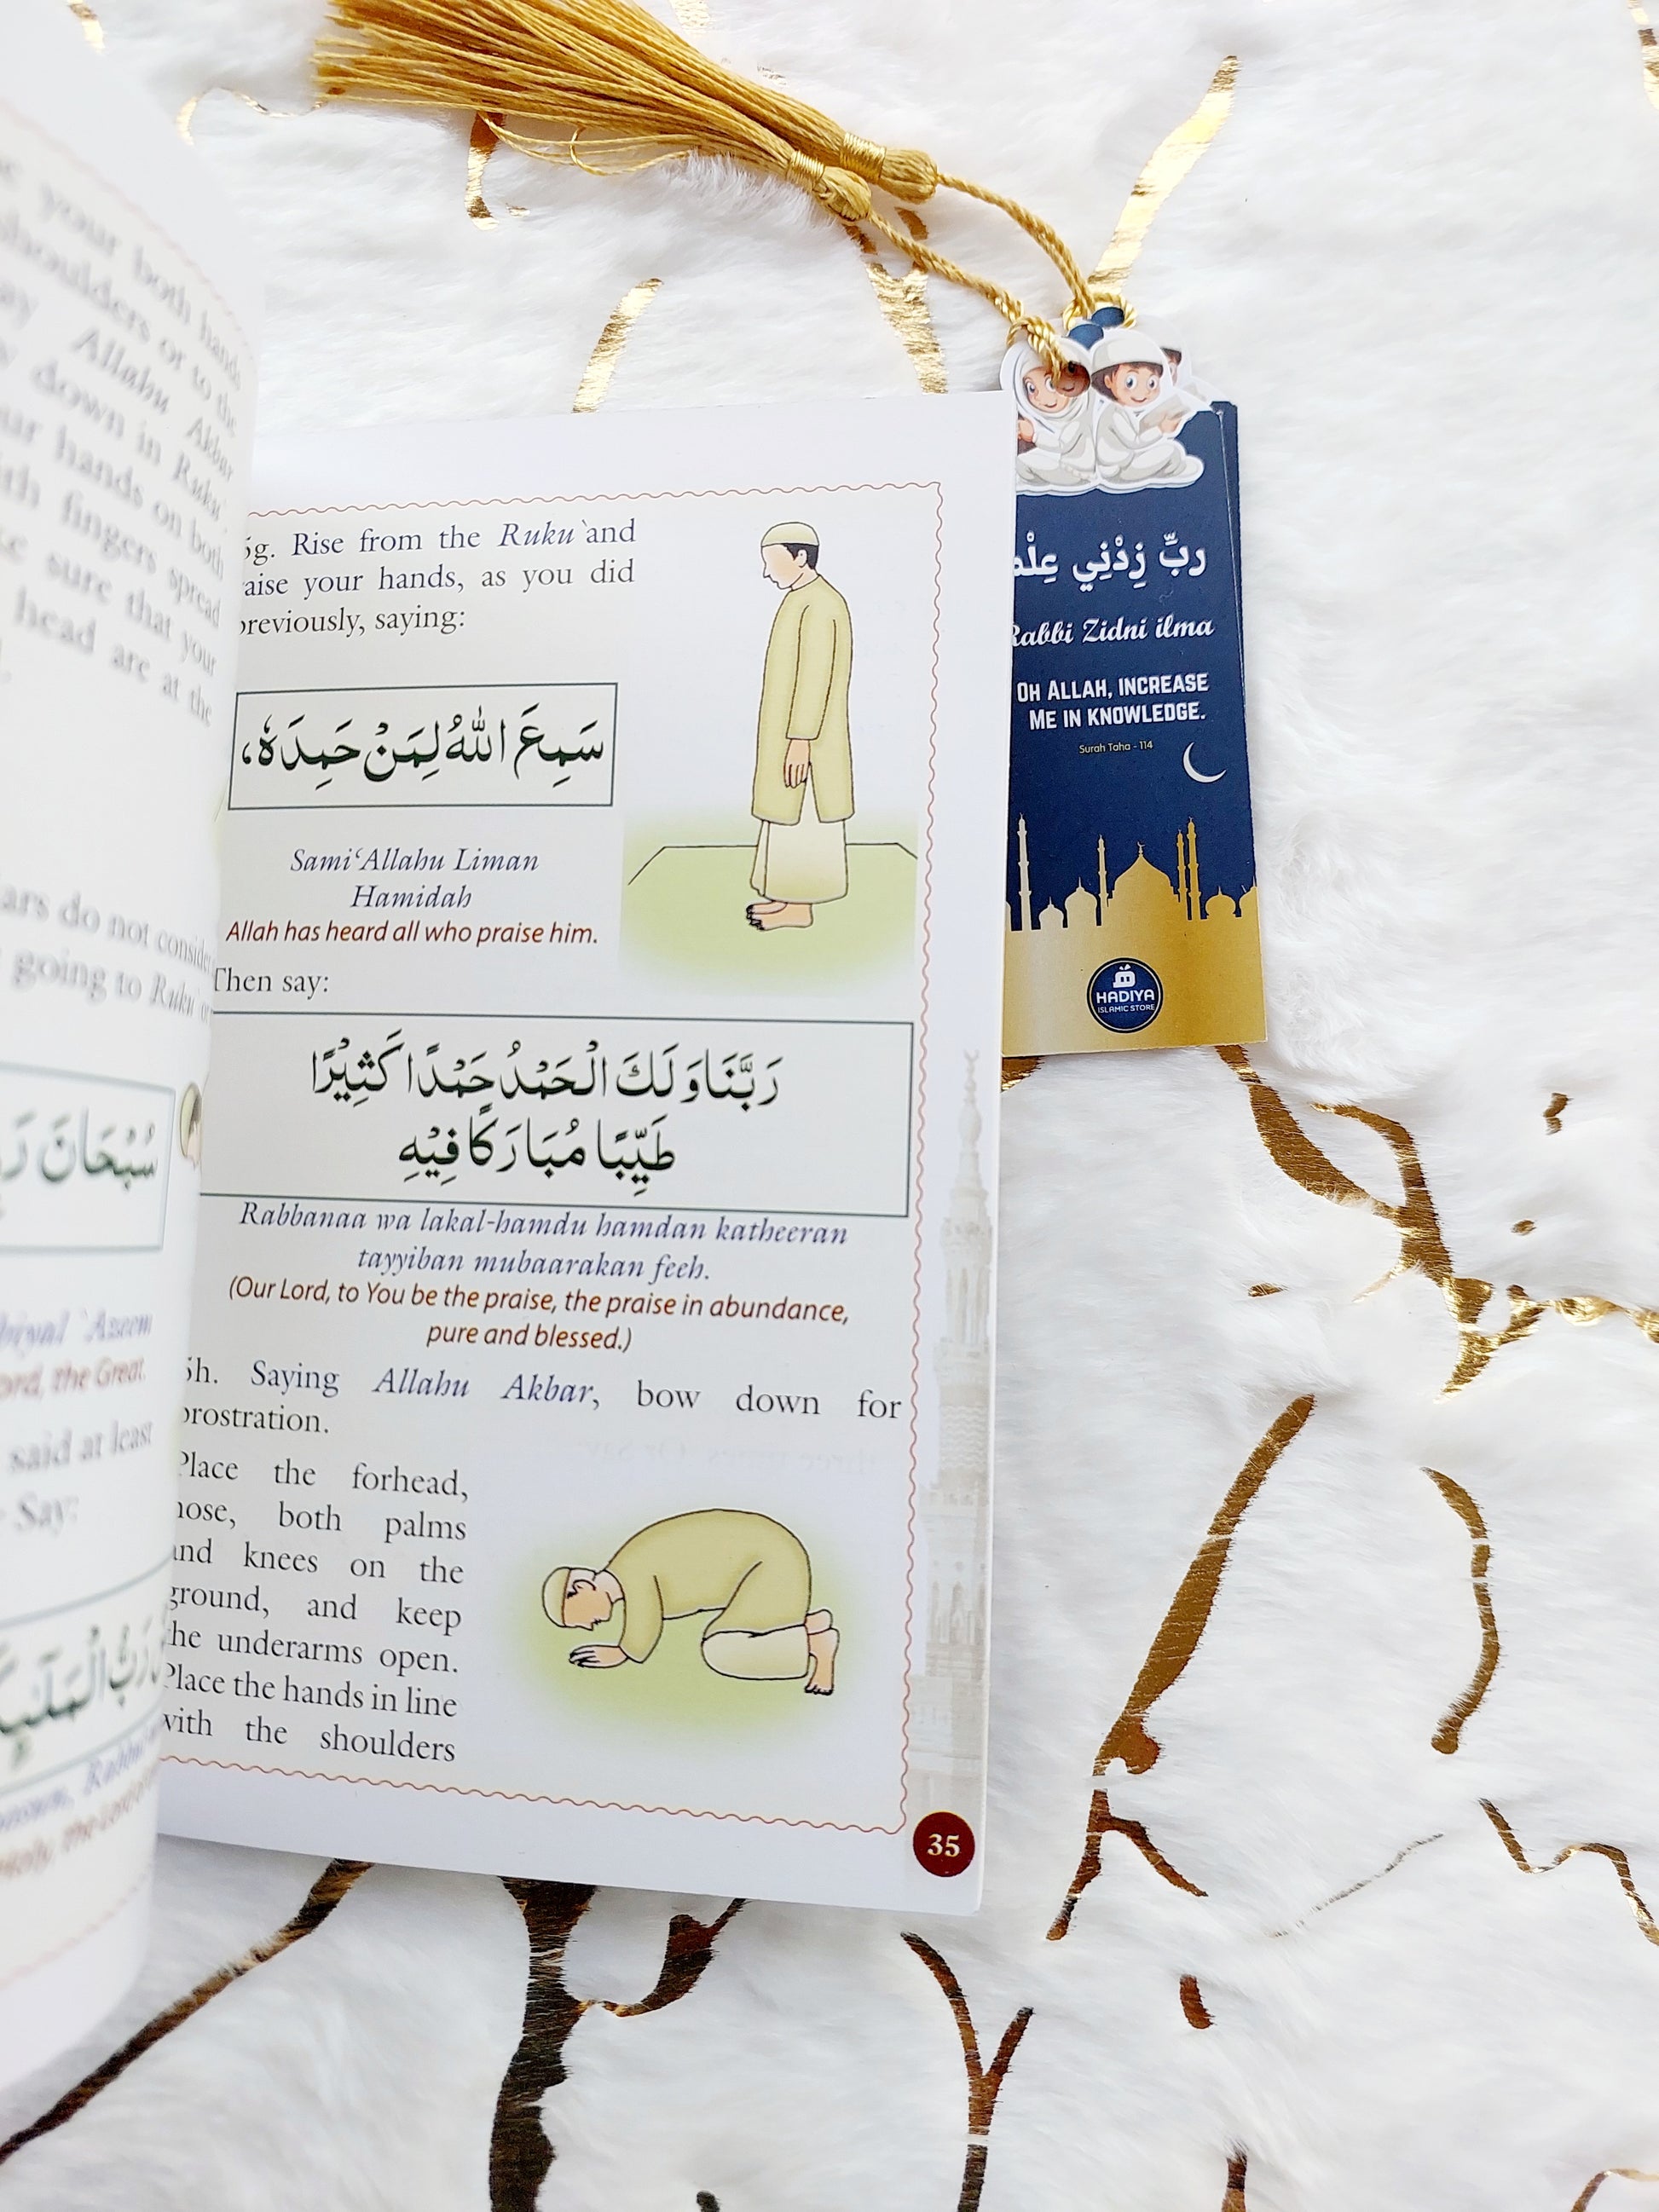 your both hands
shoulders or to the
Allahu Akbar
down in Ruku'.
hands on both
fingers spread
sure that your
head are at the
do not consider
going to Ruku'
سُبْحَانَ
Azeem
the Great.
said at least
Say:
5g. Rise from the Ruku` and
raise your hands, as you did
previously, saying:
سَمِعَ اللّٰهُ لِمَنْ حَمِدَهٗ،
Sami‘Allahu Liman
Hamidah
Allah has heard all who praise him.
Then say:
رَبَّنَا وَلَكَ الْحَمْدُ حَمْدًا كَثِيْرًا
طَيِّبًا مُبَارَكًا فِيْهِ
Rabbanaa wa lakal-hamdu hamdan katheeran
tayyiban mubaarakan feeh.
(Our Lord, to You be the praise, the praise in abundance,
pure and blessed.)
5h. Saying Allahu Akbar, bow down for
prostration.
Place the forhead,
nose, both palms
and knees on the
ground, and keep
the underarms open.
Place the hands in line
with the shoulders
35
رَبِّ زِدْنِي
Rabbi Zidni ilma
OH ALLAH, INCREASE
ME IN KNOWLEDGE.
Surah Taha - 114
HADIYA
ISLAMIC STORE